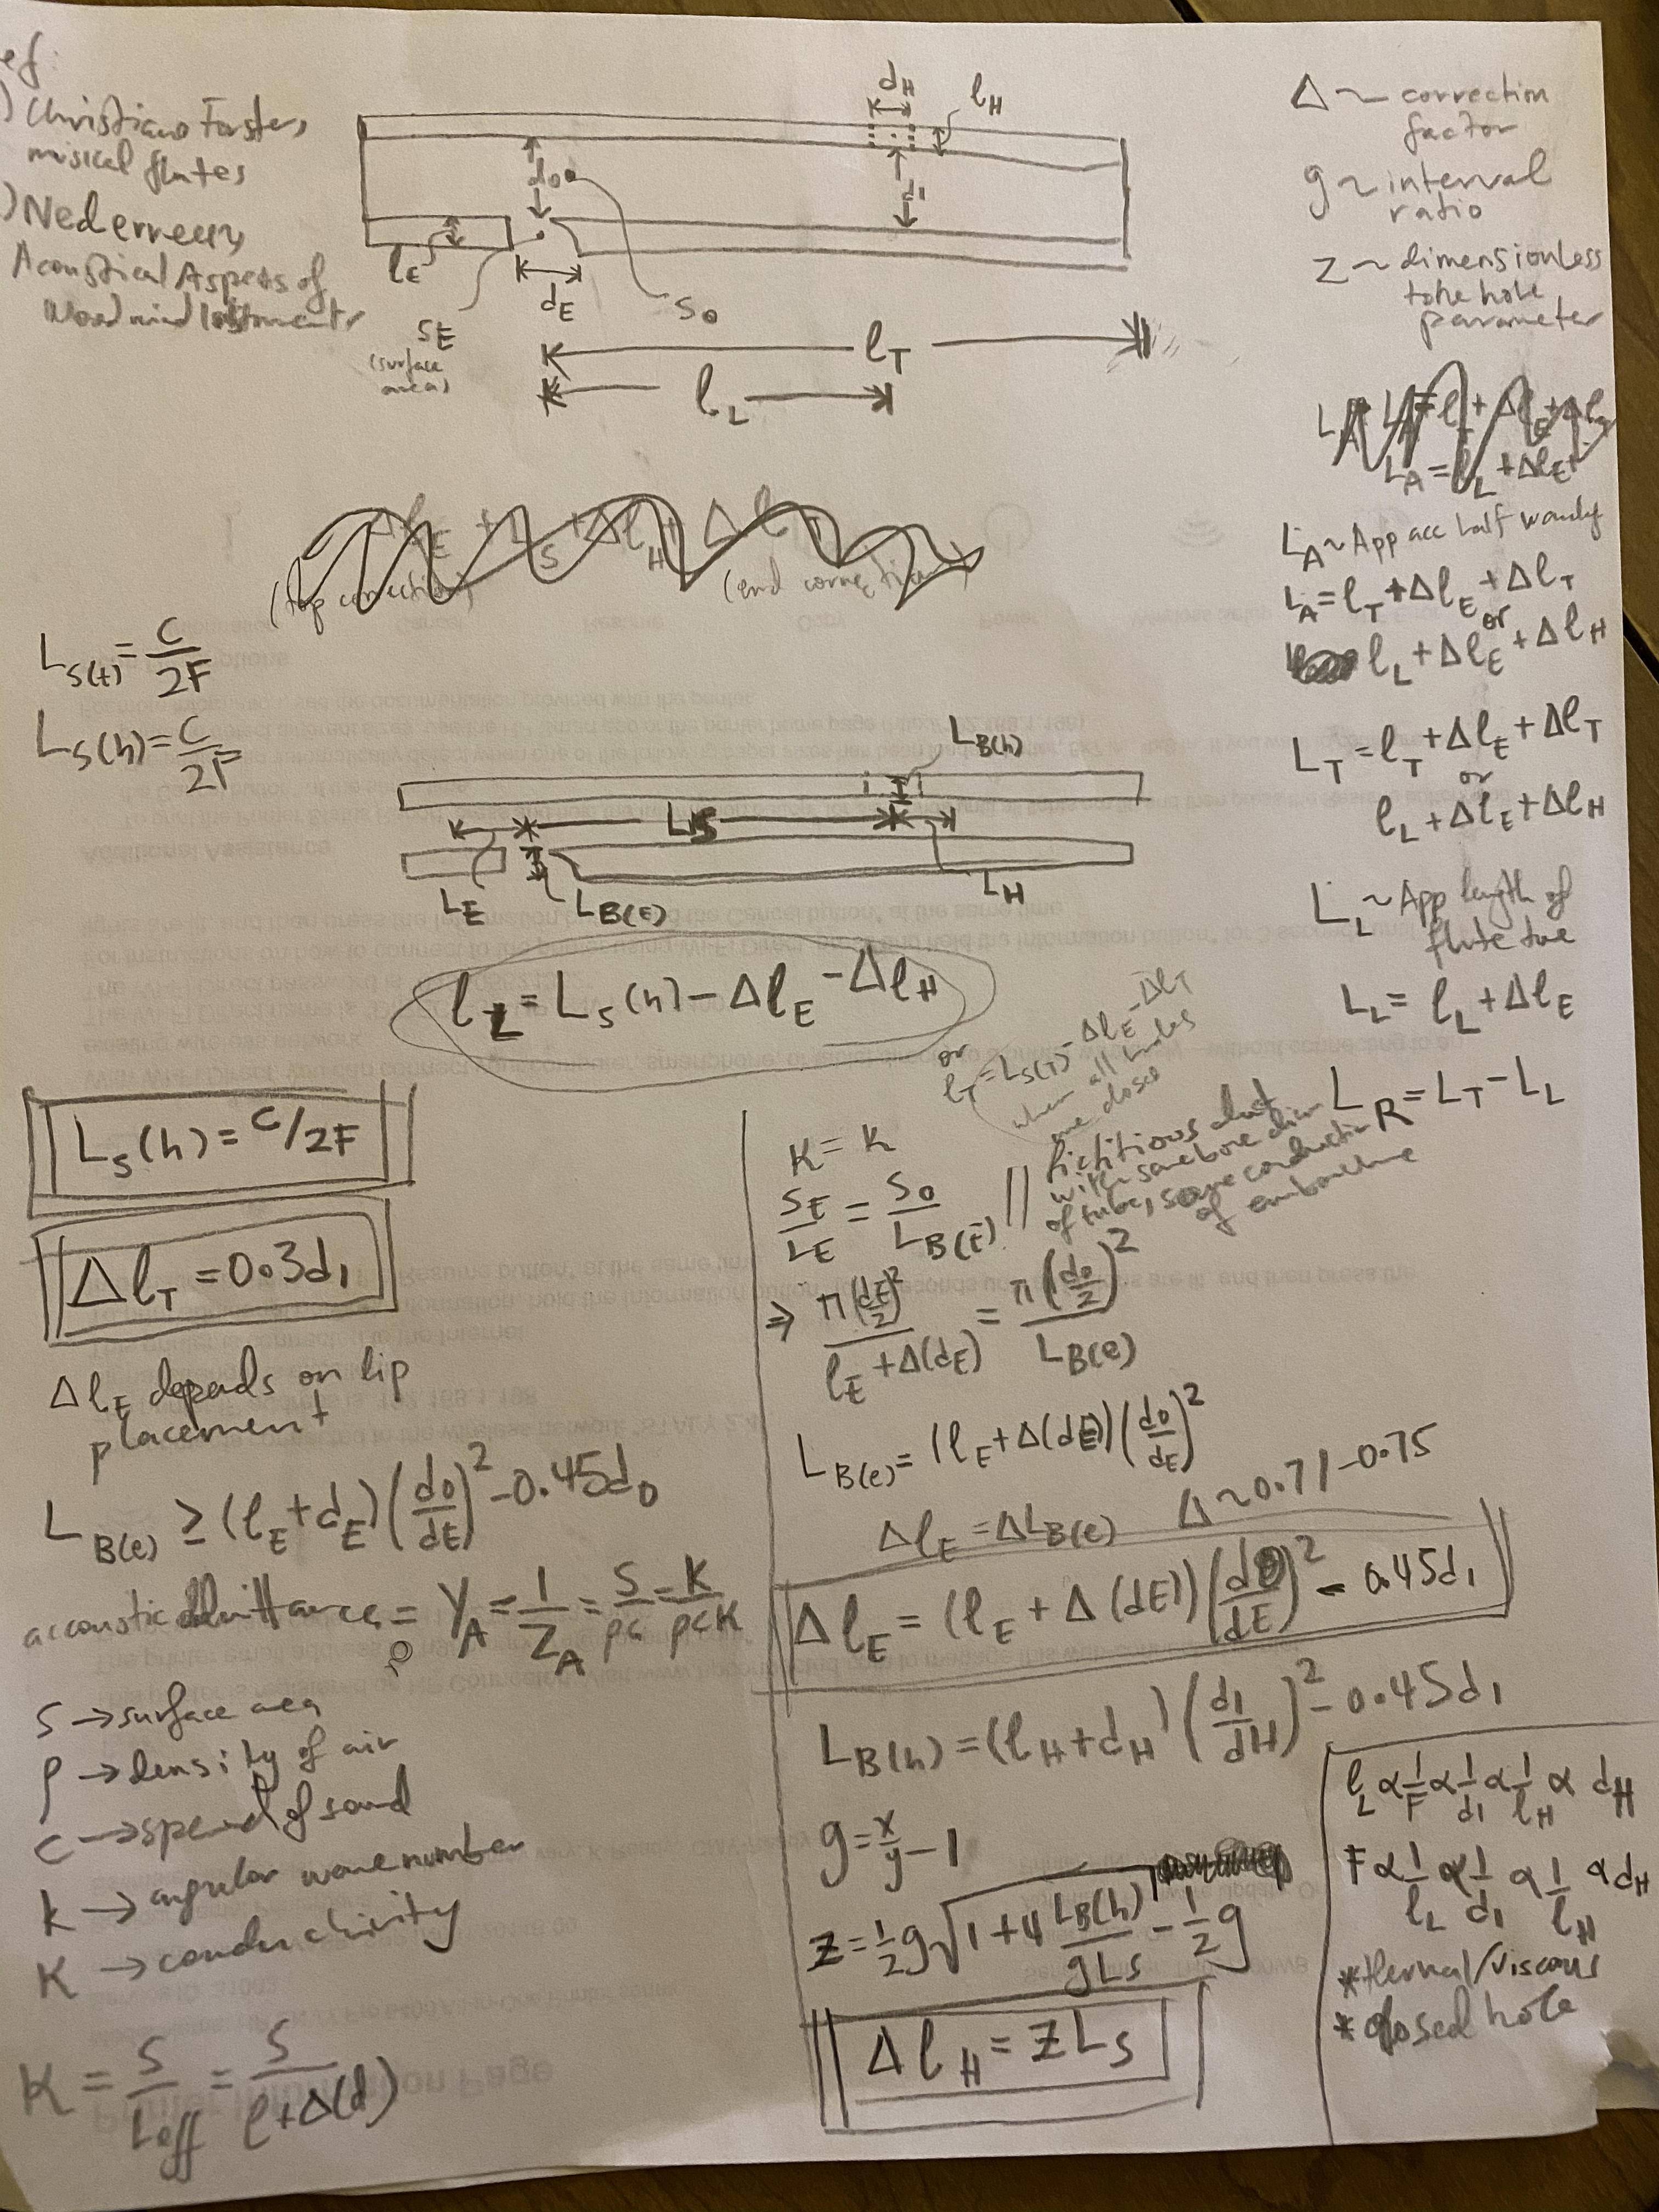 ef:
) Christiano Forster,
musical flutes
) Nederveen,
Acoustical Aspects of
Woodwind Instruments
d_H
l_H
d_0
d_1
l_E
d_E
S_E
(surface
area)
S_0
l_T
l_L
Δ ~ correction
factor
g ~ interval
ratio
z ~ dimensionless
tone hole
parameter
L_A = l_L + Δl_E +
L_A ~ App acc half
L_A = l_T + Δl_E + Δl_T
or
l_L + Δl_E + Δl_H
L_T = l_T + Δl_E + Δl_T
or
l_L + Δl_E + Δl_H
L_L ~ App length of
flute
L_L = l_L + Δl_E
L_R = L_T - L_L
(top correction)
(end correction)
L_S(t) = C/2F
L_S(h) = C/2F
L_B(h)
L_S
L_E
L_B(E)
L_H
l_L = L_S(h) - Δl_E - Δl_H
or
l_T = L_S(T) - Δl_E - Δl_T
when all holes
are closed
L_S(h) = C/2F
Δl_T = 0.3d_1
Δl_E depends on lip
placement
L_B(e) ≥ (l_E + d_E)(d_0/d_E)^2 - 0.45d_0
accoustic admittance = Y_A = 1/Z_A = S/ρc = K/ρcK
ρ
S → surface area
ρ → density of air
C → speed of sound
k → angular wavenumber
K → conductivity
K = S/L_eff = S/(l + Δ(d))
K = K
S_E/L_E = S_0/L_B(E) || fictitious duct
with same bore diam
of tube, same conduction
of embouchure
⇒ π(d_E/2)^2/(l_E + Δ(d_E)) = π(d_0/2)^2/L_B(e)
L_B(e) = (l_E + Δ(d_E))(d_0/d_E)^2
Δl_E = ΔL_B(e) Δ ~ 0.71-0.75
Δl_E = (l_E + Δ(d_E))(d_0/d_E)^2 - 0.45d_1
L_B(h) = (l_H + d_H)(d_1/d_H)^2 - 0.45d_1
g = x/y - 1
z = 1/2 g√(1 + 4 L_B(h)/gL_S) - 1/2 g
Δl_H = zL_S
l_L α 1/F α 1/d_1 α 1/l_H α d_H
F α 1/l_L α 1/d_1 α 1/l_H α d_H
* thermal/viscous
* closed hole